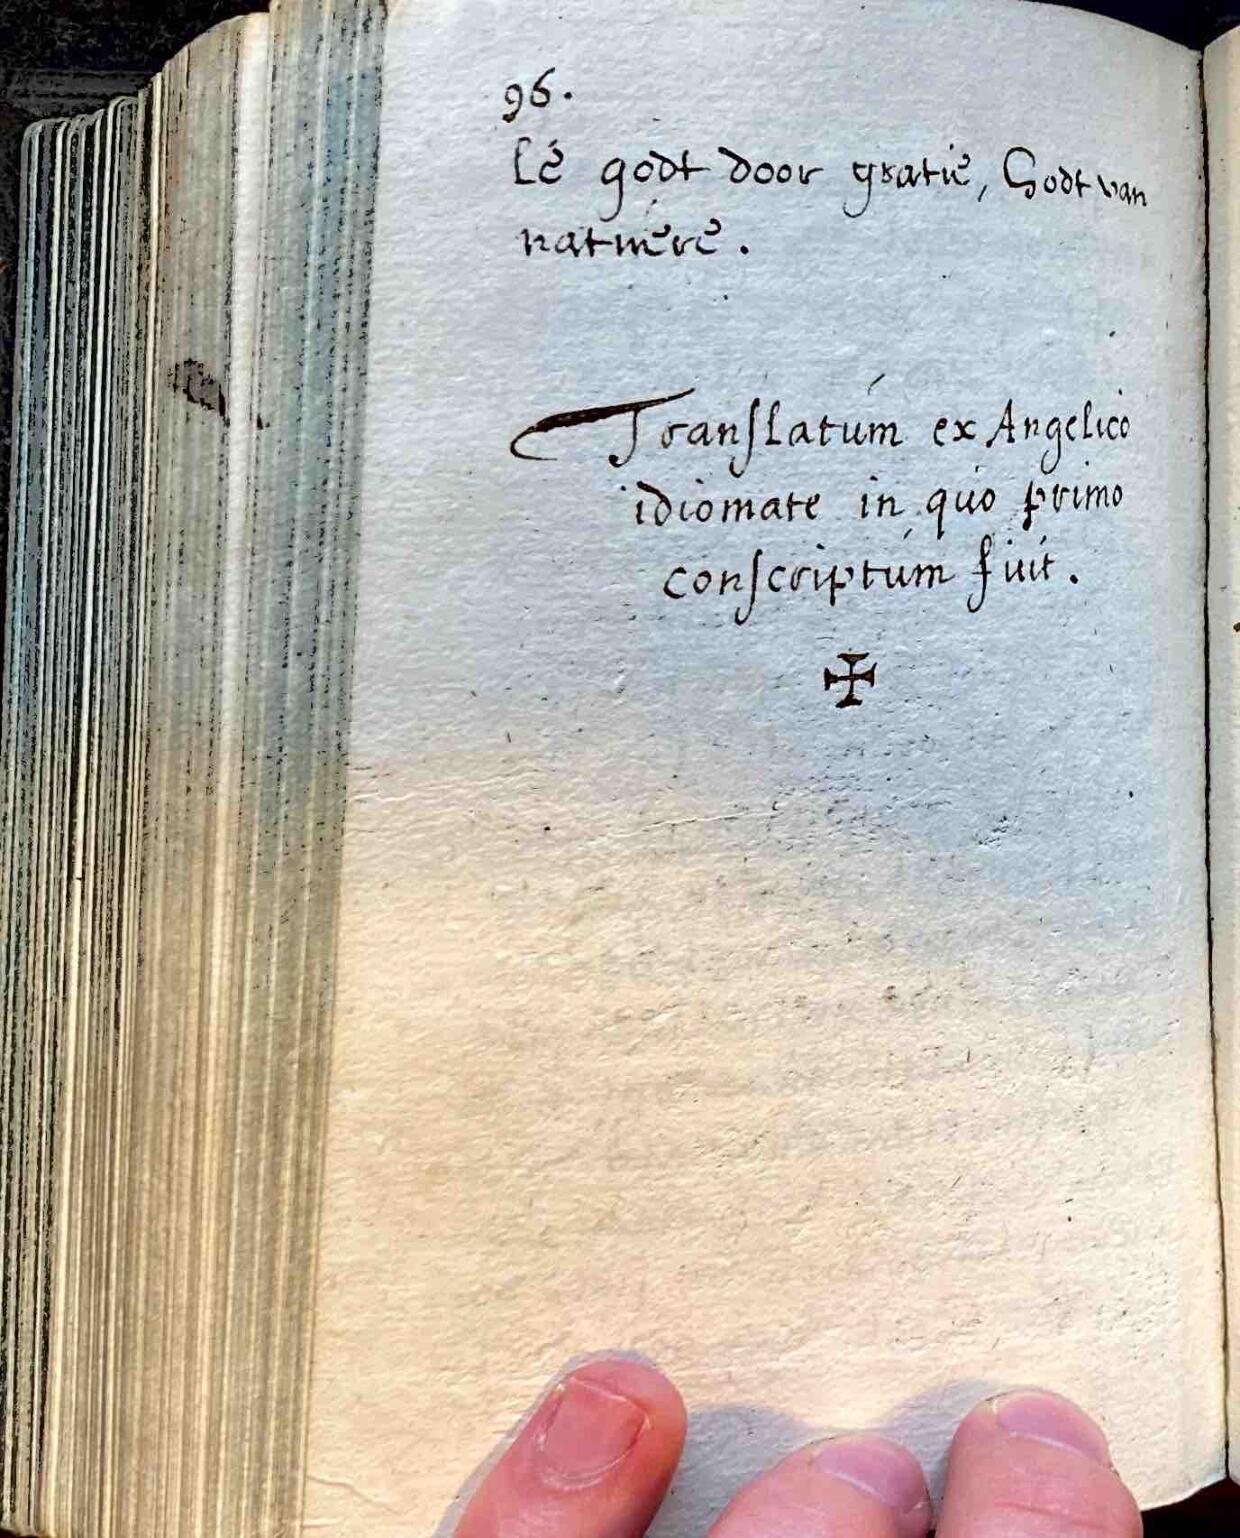 96.
Lé godt door gratie, Godt van
natuere.
Tranſlatúm ex Angelico
idiomate in quo primo
conſcriptúm fuit.
✠